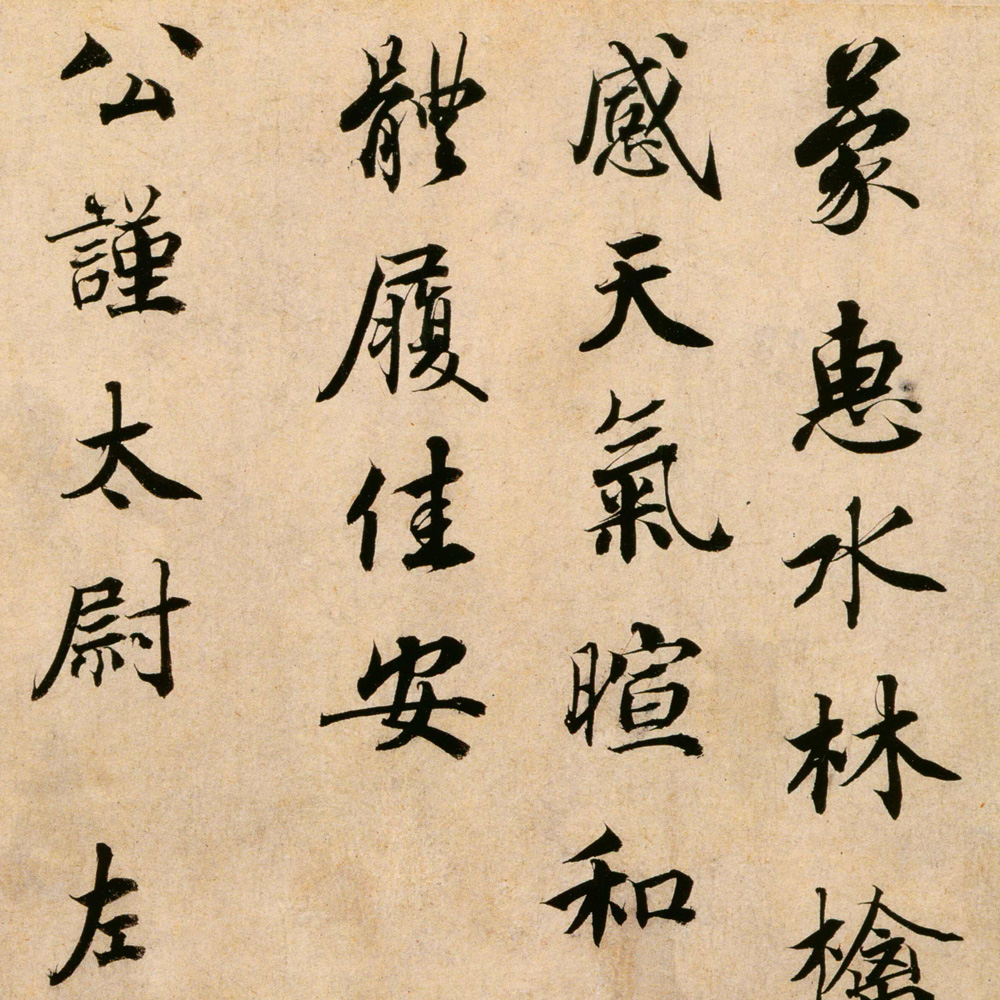 蒙惠水林檎
感天氣暄和
體履佳安
公謹太尉左